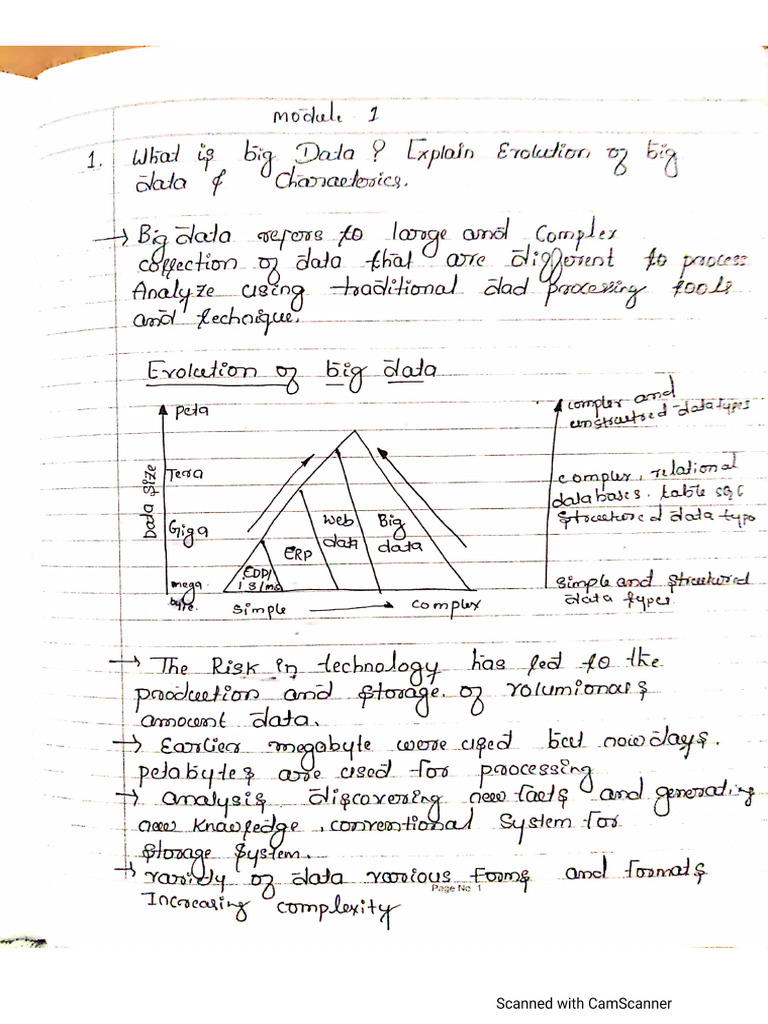 Module 1
1. What is big Data ? Explain Evolution of big
data & Characterics.
→ Big data refers to large and Complex
collection of data that are different to process
Analyze using traditional dad processing tools
and technique.
Evolution of big data
Data size
Peta
Tera
Giga
mega
byte.
EDP/
ERP
Web
data
Big
data
Simple → Complex
complex and
unstructred datatypes
complex, relational
databases. table sql
structured data type
simple and structured
data types.
→ The Risk in technology has led to the
production and storage of volumionars
amount data.
→ Earlier megabyte were used but now days.
petabytes are used for processing
→ analysis discovering new facts and generating
new knowledge, conventional system for
storage system.
→ variely of data various forms and formats
Page No. 1
Increasing complexity
Scanned with CamScanner